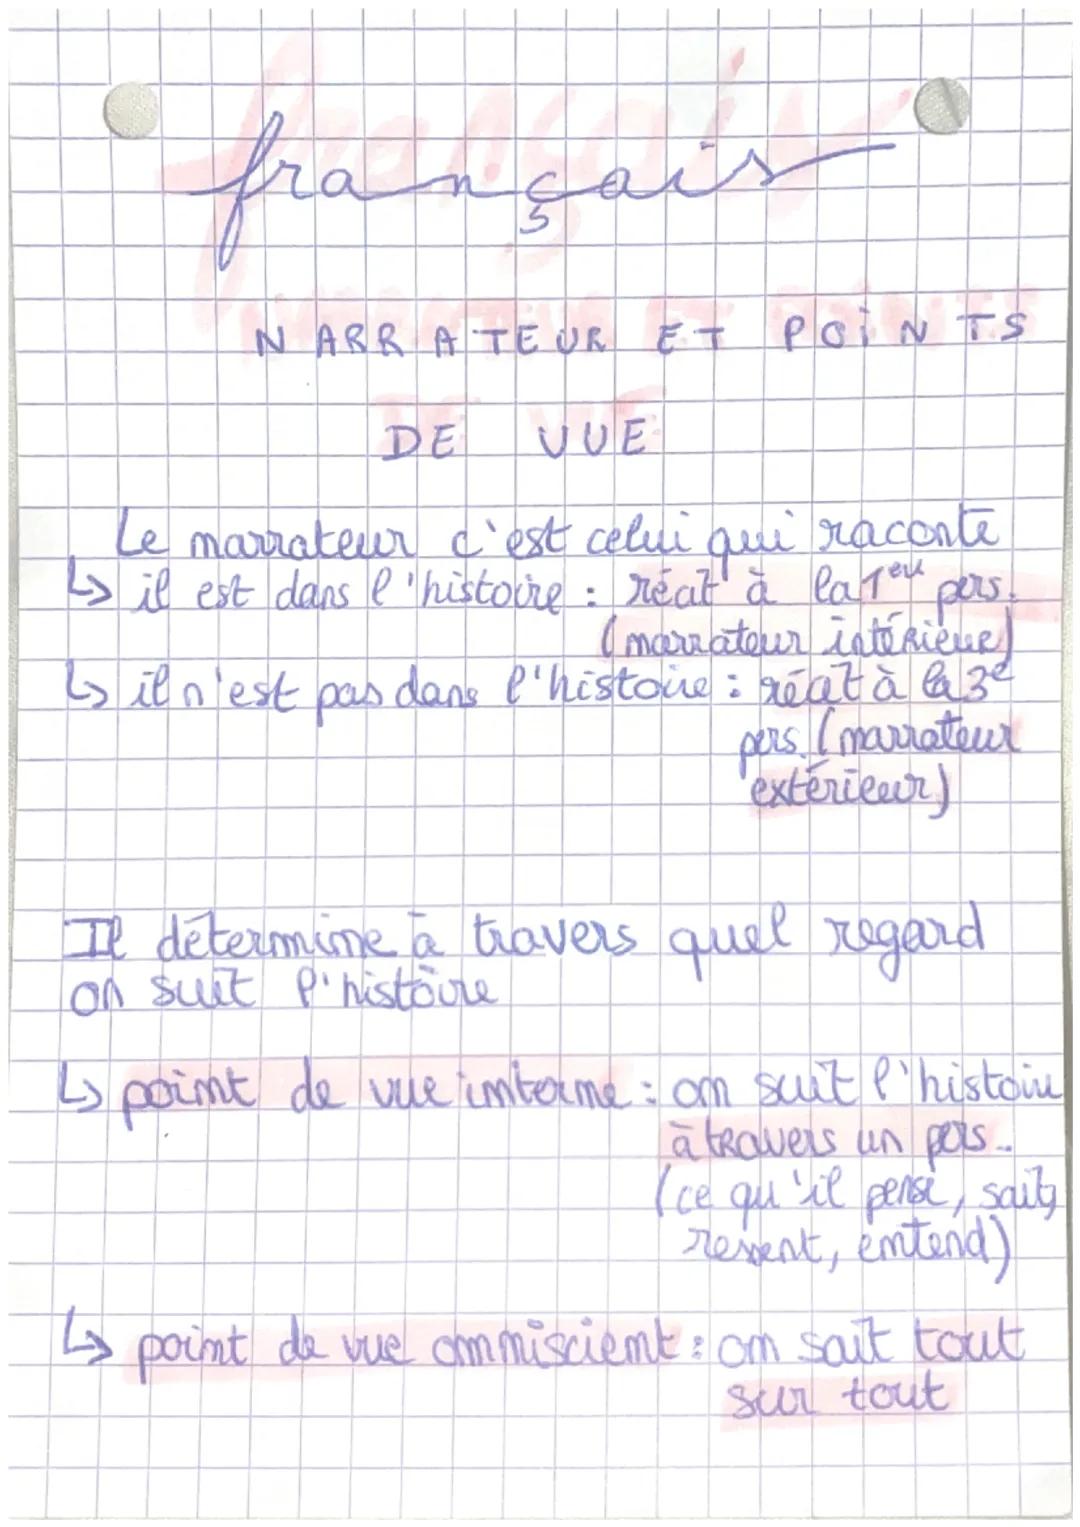 français
NARRATEUR ET POINTS
DE VUE
Le narrateur c'est celui qui raconte
↳ il est dans l'histoire : récit à la 1ère pers.
(narrateur intérieur)
↳ il n'est pas dans l'histoire : récit à la 3e
pers. (narrateur
extérieur)
Il détermine à travers quel regard
on suit l'histoire
↳ point de vue interne : on suit l'histoire
à travers un pers..
(ce qu'il pense, sait,
ressent, entend)
↳ point de vue omniscient : on sait tout
sur tout